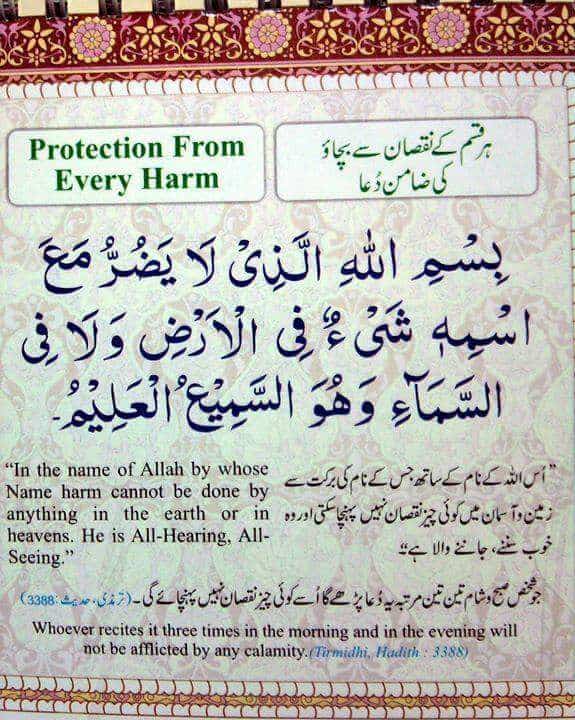 Protection From
Every Harm
ہر قسم کے نقصان سے بچاؤ
کی ضامن دُعا
بِسْمِ اللهِ الَّذِیْ لَا یَضُرُّ مَعَ
اسْمِهٖ شَیْءٌ فِی الْاَرْضِ وَلَا فِی
السَّمَآءِ وَهُوَ السَّمِیْعُ الْعَلِیْمُ۔
“In the name of Allah by whose
Name harm cannot be done by
anything in the earth or in
heavens. He is All-Hearing, All-
Seeing.”
”اُس اللہ کے نام کے ساتھ جس کے نام کی برکت سے
زمین و آسمان میں کوئی چیز نقصان نہیں پہنچا سکتی اور وہ
خوب سننے، جاننے والا ہے“۔
جو شخص صبح و شام تین تین مرتبہ یہ دُعا پڑھے گا اُسے کوئی چیز نقصان نہیں پہنچائے گی۔ (ترمذی، حدیث :3388)
Whoever recites it three times in the morning and in the evening will
not be afflicted by any calamity.(Tirmidhi, Hadith : 3388)